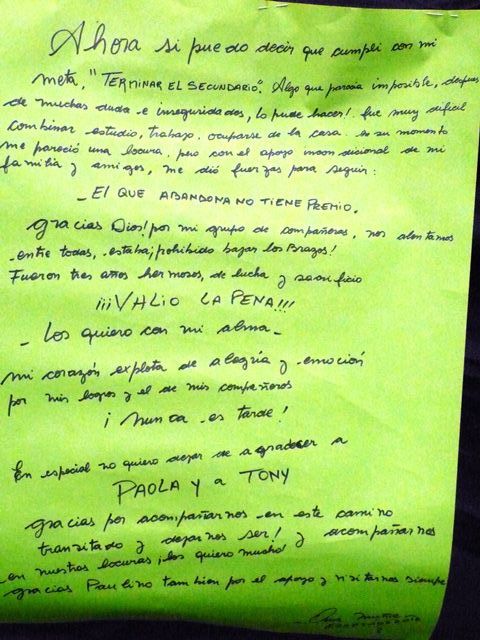 Ahora si puedo decir que cumpli con mi
meta, "TERMINAR EL SECUNDARIO". Algo que parecia imposible, despues
de muchas duda e inseguridades, lo pude hacer! fue muy dificil
combinar estudio, trabajo, ocuparse de la casa. en su momento
me pareció una locura, pero con el apoyo incondicional de mi
familia y amigos, me dió fuerzas para seguir:
- EL QUE ABANDONA NO TIENE PREMIO.
gracias Dios! por mi grupo de compañeras, nos alentamos
entre todas, estaba ¡prohibido bajar los Brazos!
Fueron tres años hermosos, de lucha y sacrificio
¡¡¡VALIO LA PENA!!!
- Los quiero con mi alma -
mi corazón explota de alegría y emoción
por mis logros y el de mis compañeros
¡ Nunca es tarde!
En especial no quiero dejar de agradecer a
PAOLA y a TONY
gracias por acompañarnos en este camino
transitado y dejarnos ser! y acompañarnos
en nuestras locuras, ¡los quiero mucho!
gracias Paulino tambien por el apoyo y visitarnos siempre